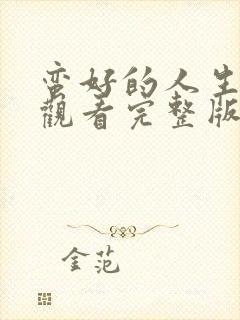 蛮好的人生
觀看完整版
金范